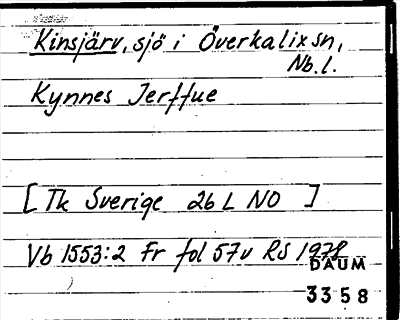 Kinsjärv, sjö i Överkalix sn,
Nb.l.
Kynnes Jerffue
[Tk Sverige 26 L NO ]
Vb 1553:2 Fr fol 57v RS 1978
DAUM
3358